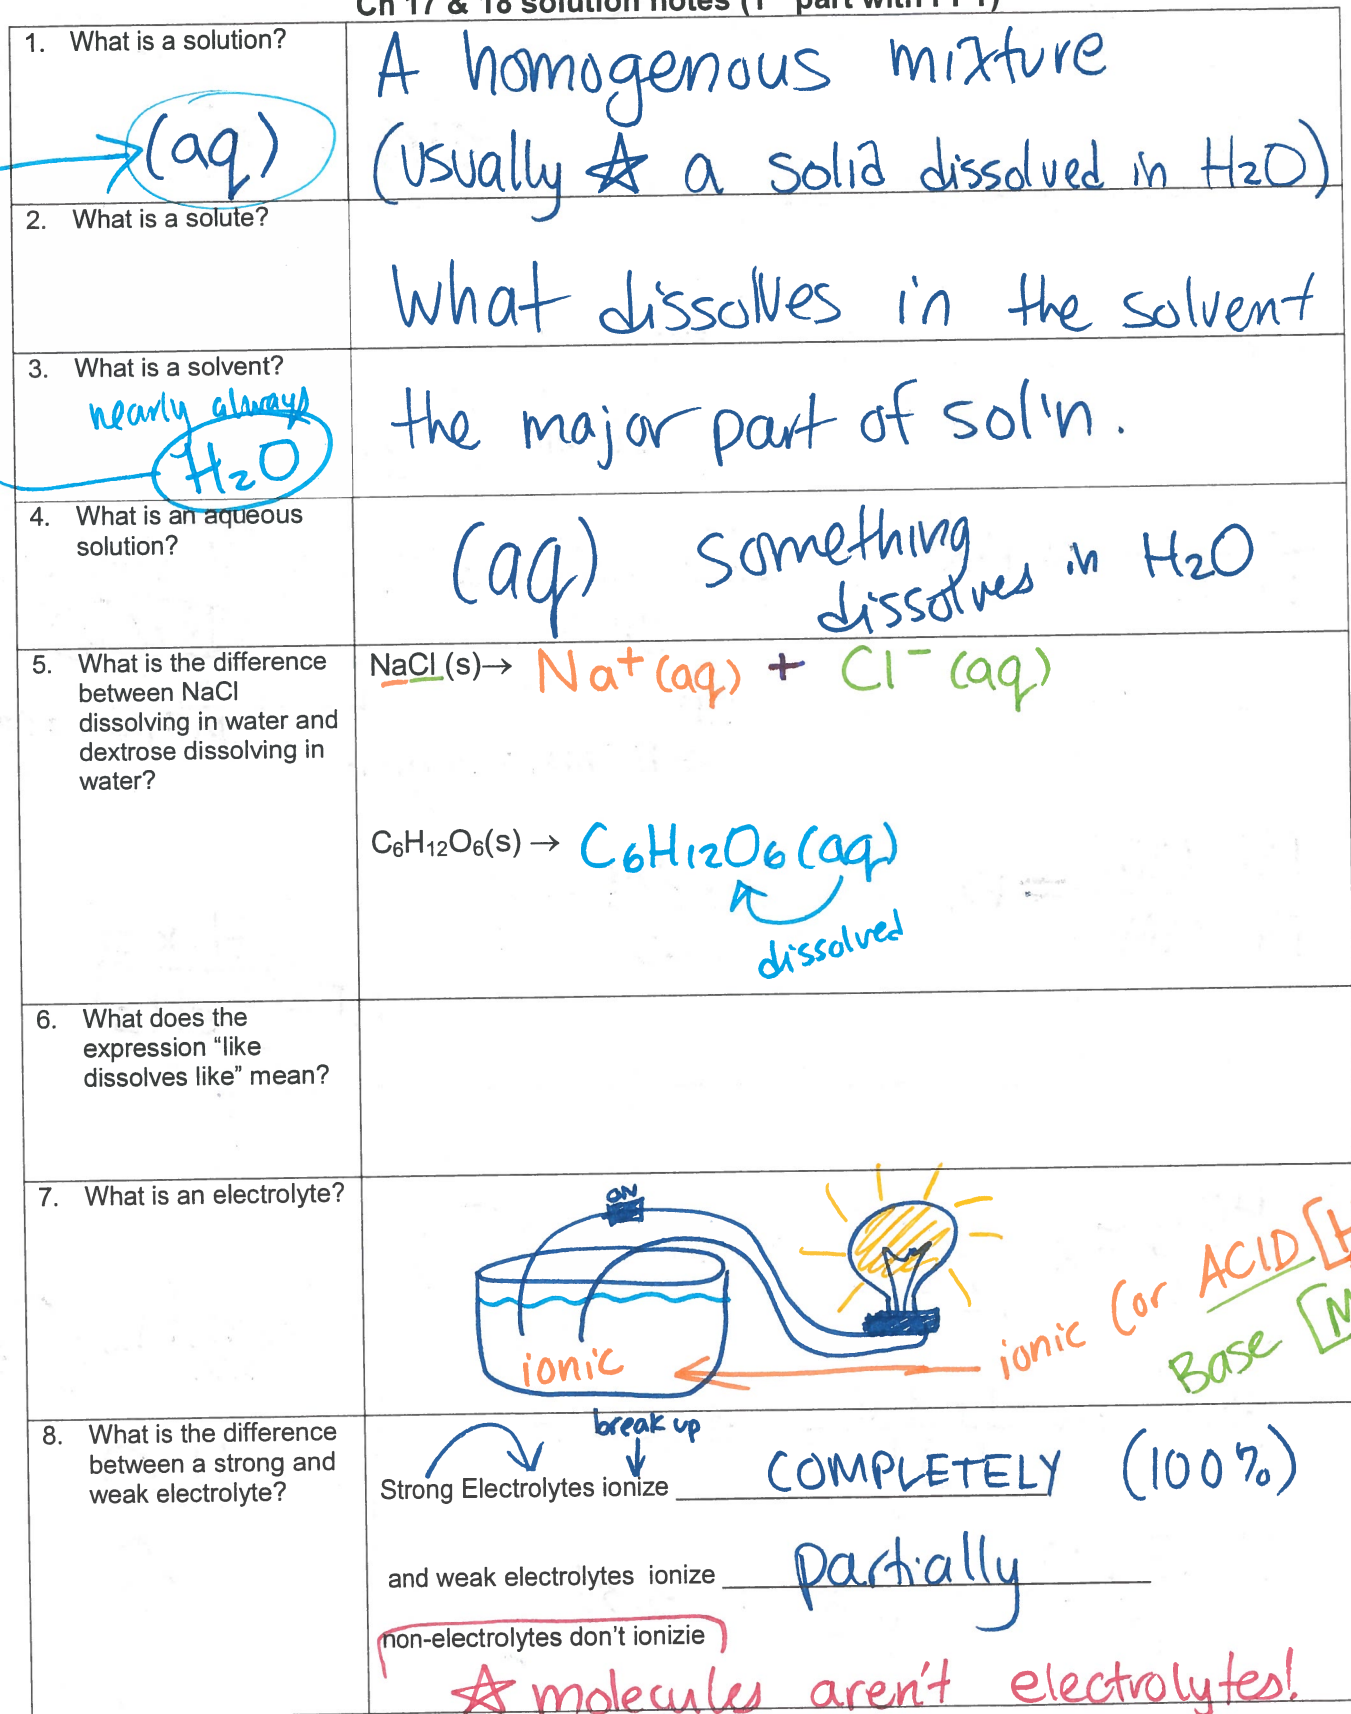 Ch 17 & 18 solution notes (1st part with PPT)
1. What is a solution?
(aq)
A homogenous mixture
(usually ☆ a solid dissolved in H2O)
2. What is a solute?
What dissolves in the solvent
3. What is a solvent?
nearly always
H2O
the major part of sol'n.
4. What is an aqueous
solution?
(aq) something
dissolves in H2O
5. What is the difference
between NaCl
dissolving in water and
dextrose dissolving in
water?
NaCl (s)→ Na+ (aq) + Cl- (aq)
C6H12O6(s) → C6H12O6 (aq)
dissolved
6. What does the
expression “like
dissolves like” mean?
7. What is an electrolyte?
ON
ionic
ionic (or ACID [H
Base [M
8. What is the difference
between a strong and
weak electrolyte?
break up
Strong Electrolytes ionize COMPLETELY (100%)
and weak electrolytes ionize partially
non-electrolytes don't ionizie
☆ molecules aren't electrolytes!